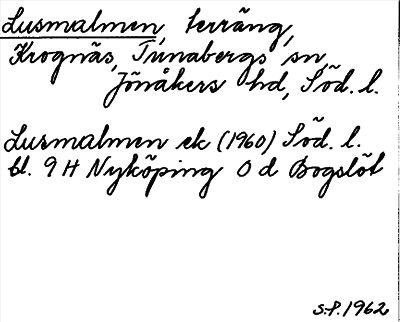 Lusmalmen, terräng,
Krognäs, Tunabergs sn,
Jönåkers hd, Söd. l.
Lusmalmen ek (1960) Söd. l.
bl. 9 H Nyköping 0 d Bogslöt
S.P. 1962